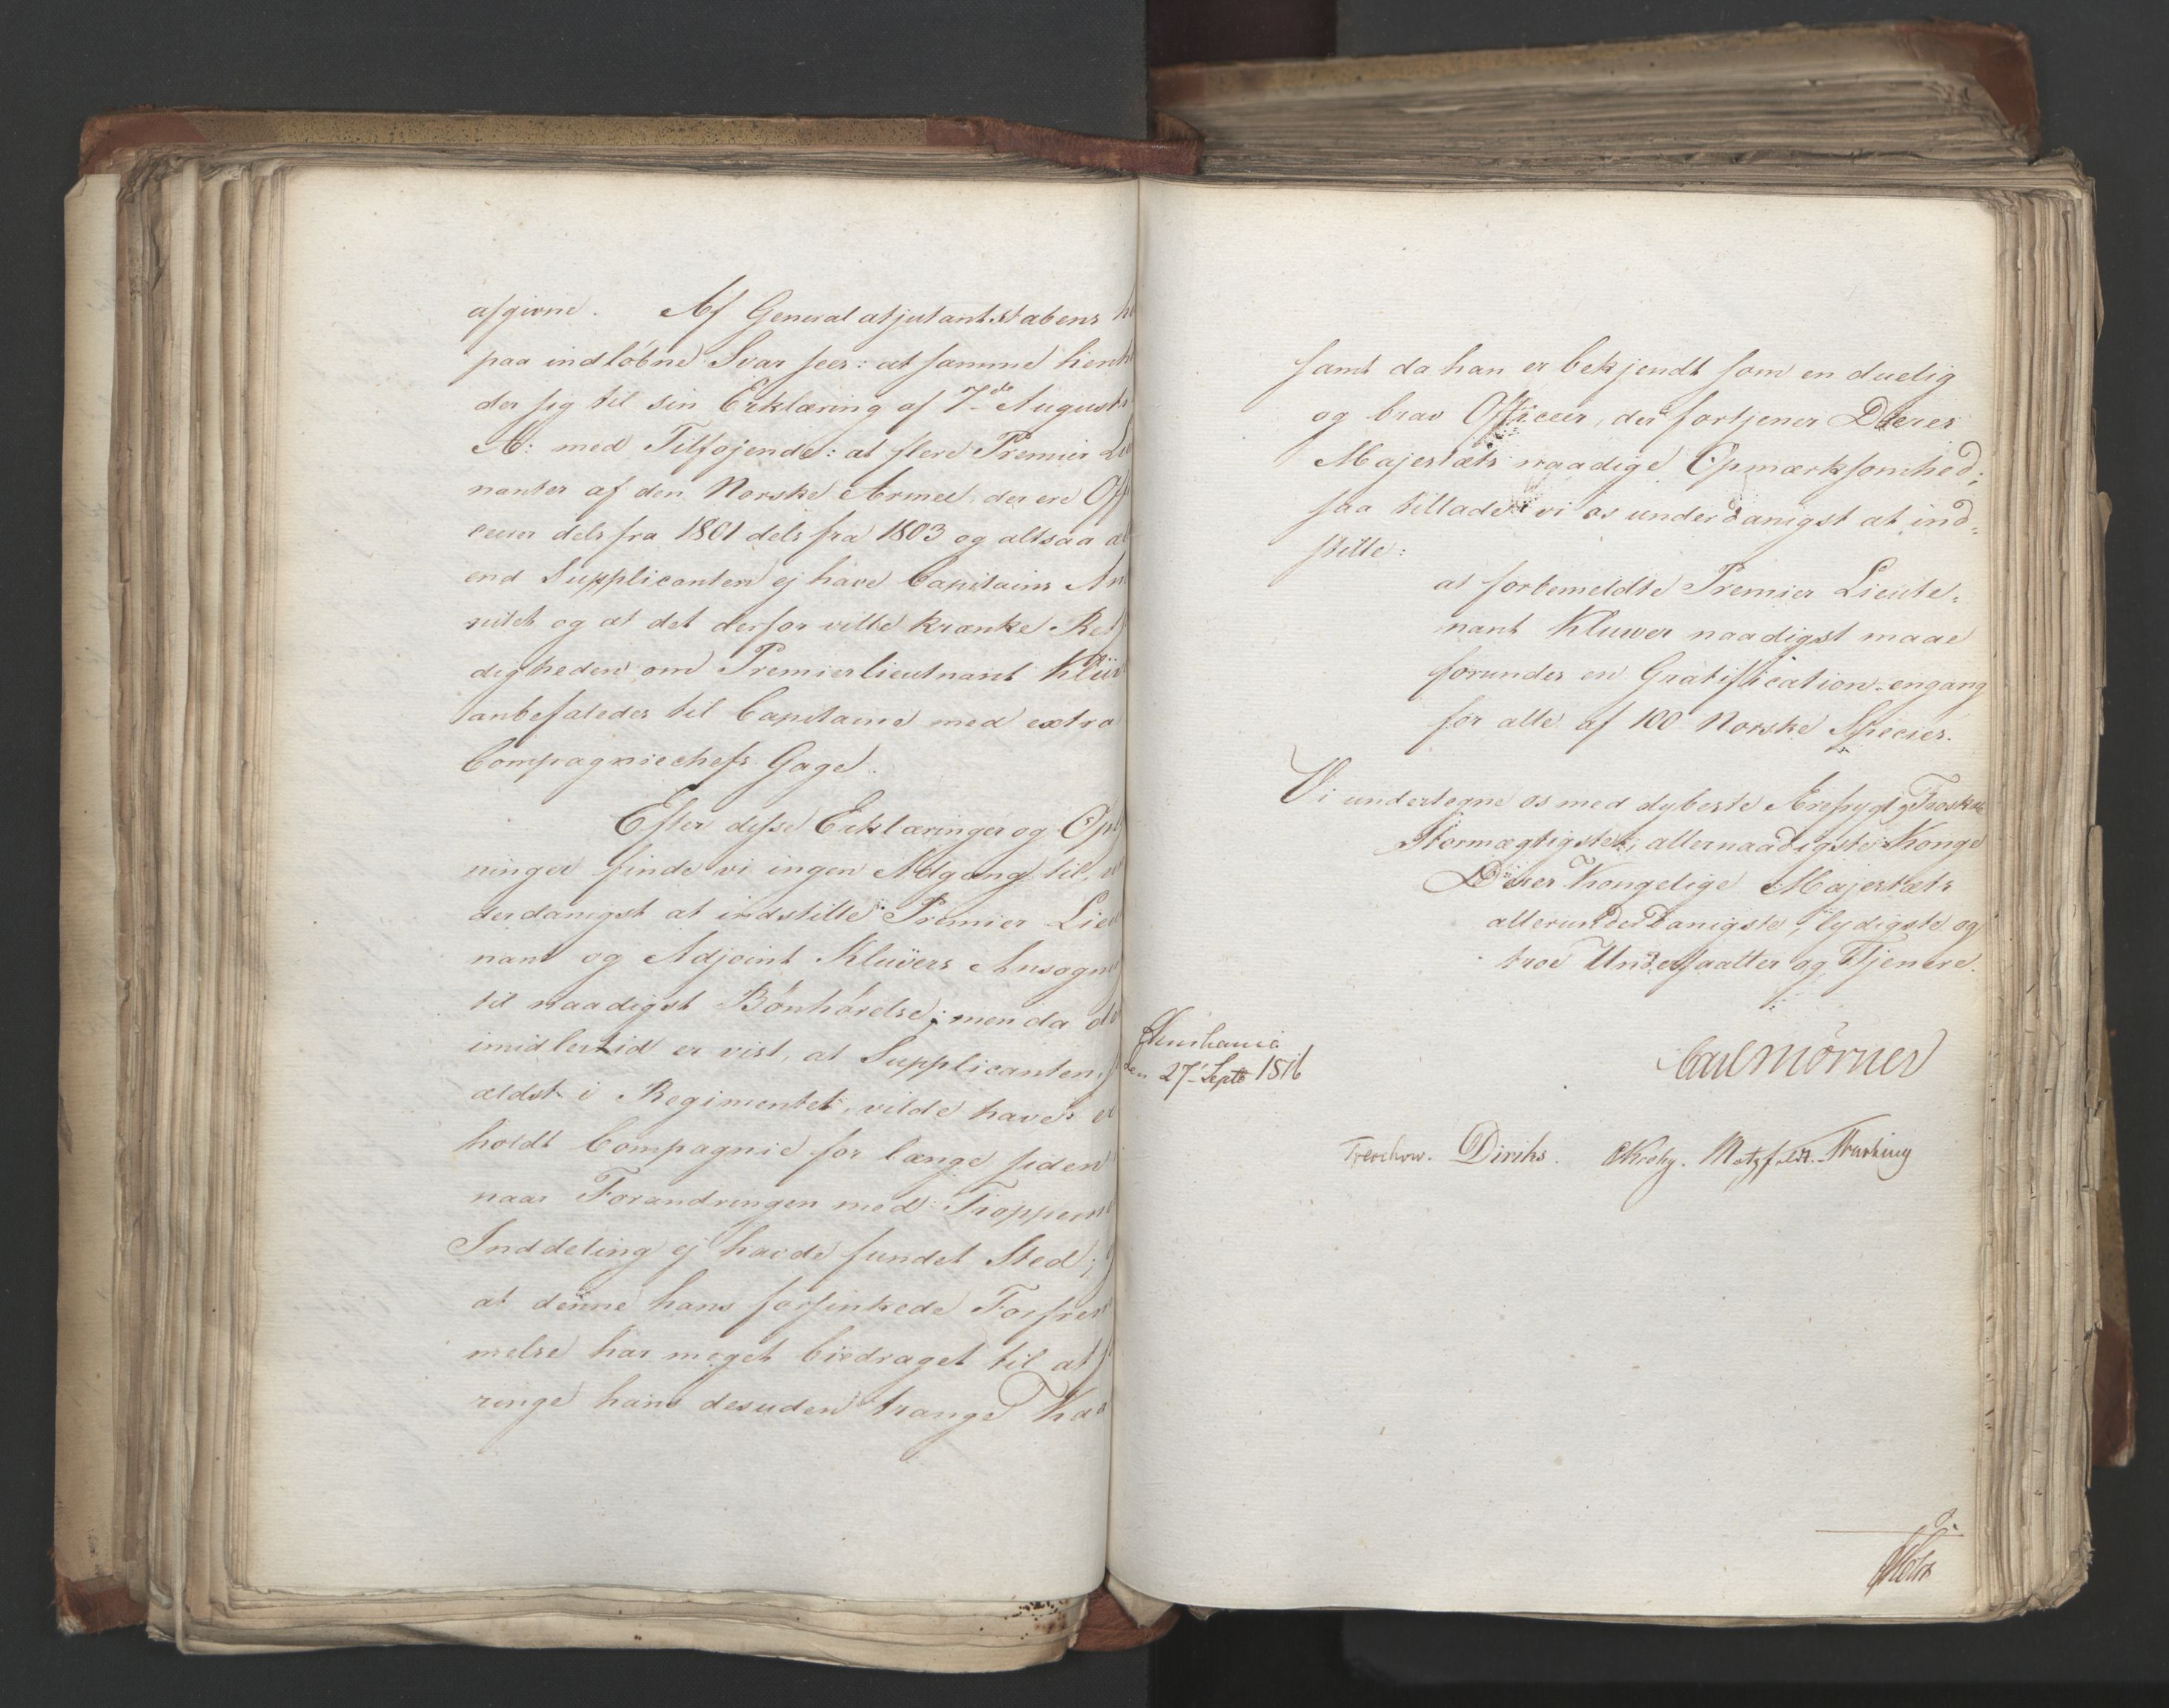 afgivne. Af Generaladjutantstabens
paa indløbne Svar sees: at samme
der sig til sin Erklæring af 7de August
A: med Tilføjende: at flere Premier
nanter af den Norske Armee, der ere
ceerer dels fra 1801 dels fra 1803 og altsaa
end Supplicanten ej have Capitains
nitet og at det derfor ville krænke
digheden om Premierlieutnant
anbefaledes til Capitaine med extra
Compagniechefs Gage.
Efter disse Erklæringer og
ninger finde vi ingen Adgang til,
derdanigst at indstille Premier
nant og Adjoint Klüvers
til naadigst Bönhörelse; men da
imidlertid er vist, at Supplicanten,
ældst i Regimentet, vilde have
holdt Compagnie for længe siden
naar Forandringen med
Inddeling ej havde fundet Sted;
at denne hans forsinkede
melse har meget bidraget til at
ringe hans desuden trange
samt da han er bekjendt som en duelig
og brav Officeer, der fortjener Deres
Majestæts naadige Opmærksomhed;
saa tillade vi os underdanigst at ind-
stille:
at forbemeldte Premier Lieute-
nant Kluwer naadigst maae
forundes en Gratification engang
for alle af 100 Norske Species.
Vi undertegne os med dybeste Ærefrygt og
Stormægtigste, allernaadigste Konge
Deres Kongelige Majestæts
allerunderdanigste, lydigste og
troe Undersaatter og Tjenere.
Christiania
den 27 Septb 1816
Carl Mörner
Treschow. Diriks. Krohg. Motzfeldt.